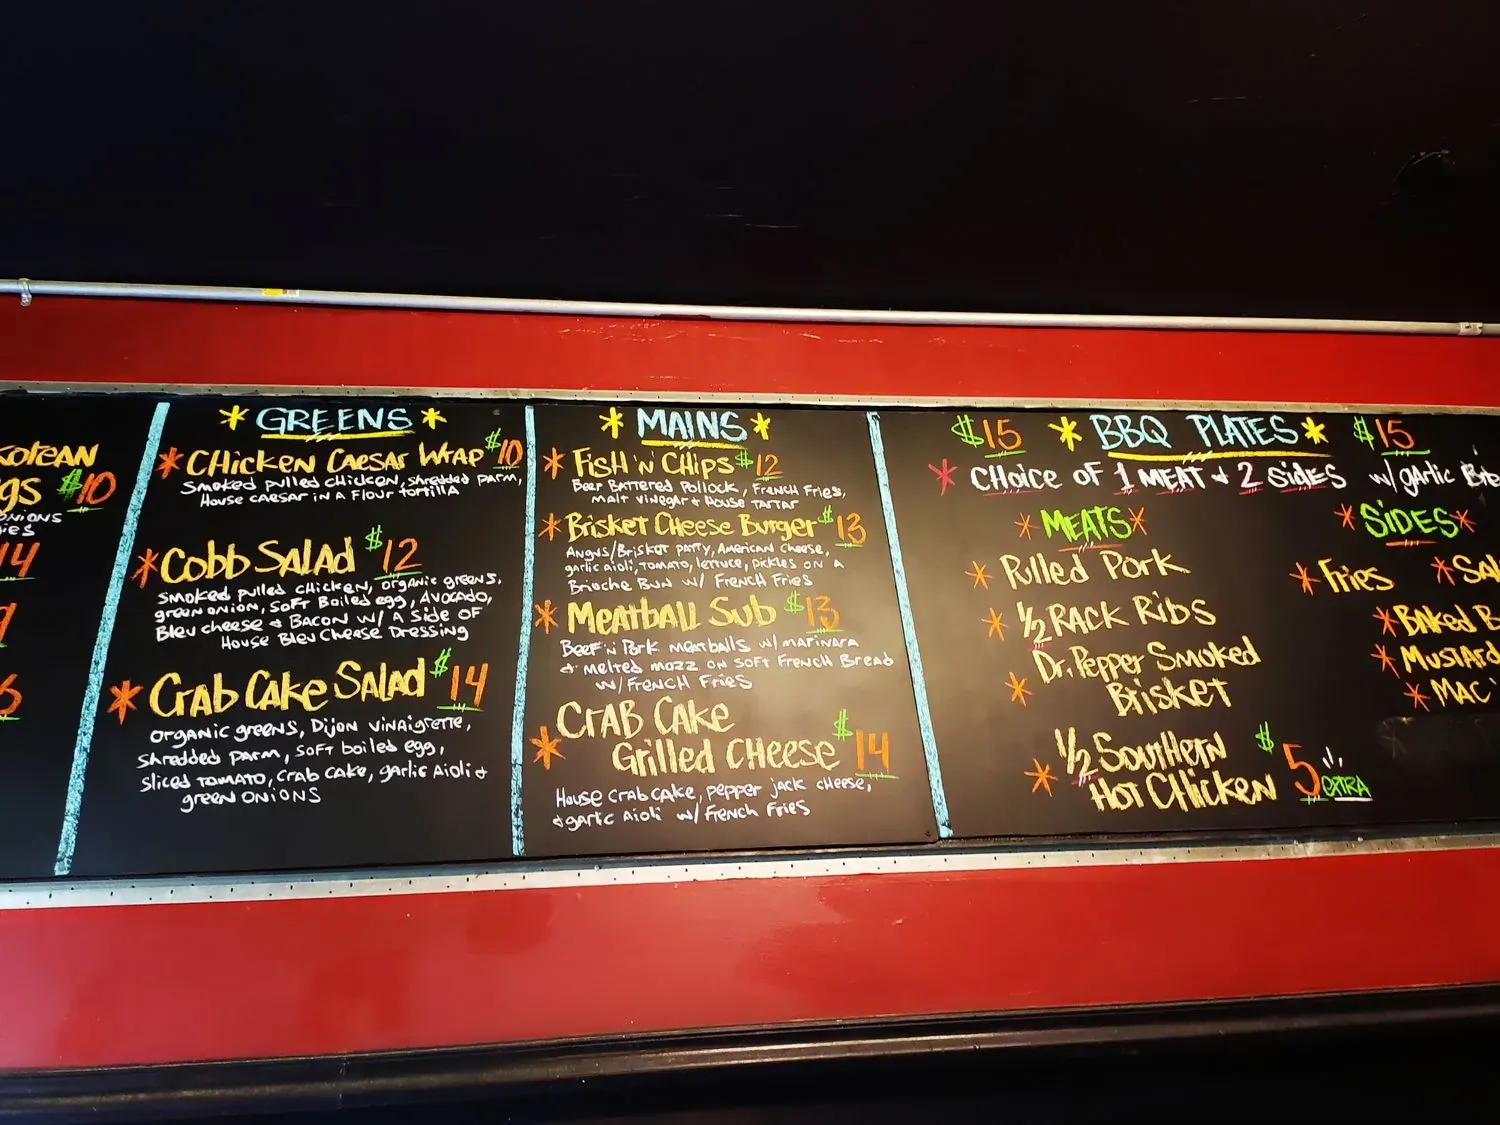 KOREAN
$10
ONIONS
14
GREENS
CHICKEN CAESAR WRAP $10
SMOKED PULLED CHICKEN, SHREDDED PARM,
HOUSE CAESAR IN A FLOUR TORTILLA
COBB SALAD $12
SMOKED PULLED CHICKEN, ORGANIC GREENS,
GREEN ONION, SOFT BOILED EGG, AVOCADO,
BLEU CHEESE & BACON W/ A SIDE OF
HOUSE BLEU CHEESE DRESSING
CRAB CAKE SALAD $14
ORGANIC GREENS, DIJON VINAIGRETTE,
SHREDDED PARM, SOFT BOILED EGG,
SLICED TOMATO, CRAB CAKE, GARLIC AIOLI &
GREEN ONIONS
MAINS
FISH 'N' CHIPS $12
BEER BATTERED POLLOCK, FRENCH FRIES,
MALT VINEGAR & HOUSE TARTAR
BRISKET CHEESE BURGER $13
ANGUS/BRISKET PATTY, AMERICAN CHEESE,
GARLIC AIOLI, TOMATO, LETTUCE, PICKLES ON A
BRIOCHE BUN W/ FRENCH FRIES
MEATBALL SUB $13
BEEF 'N PORK MEATBALLS W/ MARINARA
& MELTED MOZZ ON SOFT FRENCH BREAD
W/ FRENCH FRIES
CRAB CAKE
GRILLED CHEESE $14
HOUSE CRAB CAKE, PEPPER JACK CHEESE,
& GARLIC AIOLI W/ FRENCH FRIES
$15 BBQ PLATES $15
CHOICE OF 1 MEAT & 2 SIDES W/ GARLIC BRE
MEATS
PULLED PORK
1/2 RACK RIBS
DR. PEPPER SMOKED
BRISKET
1/2 SOUTHERN
HOT CHICKEN $5 EXTRA
SIDES
FRIES
SAL
BAKED B
MUSTARD
MAC